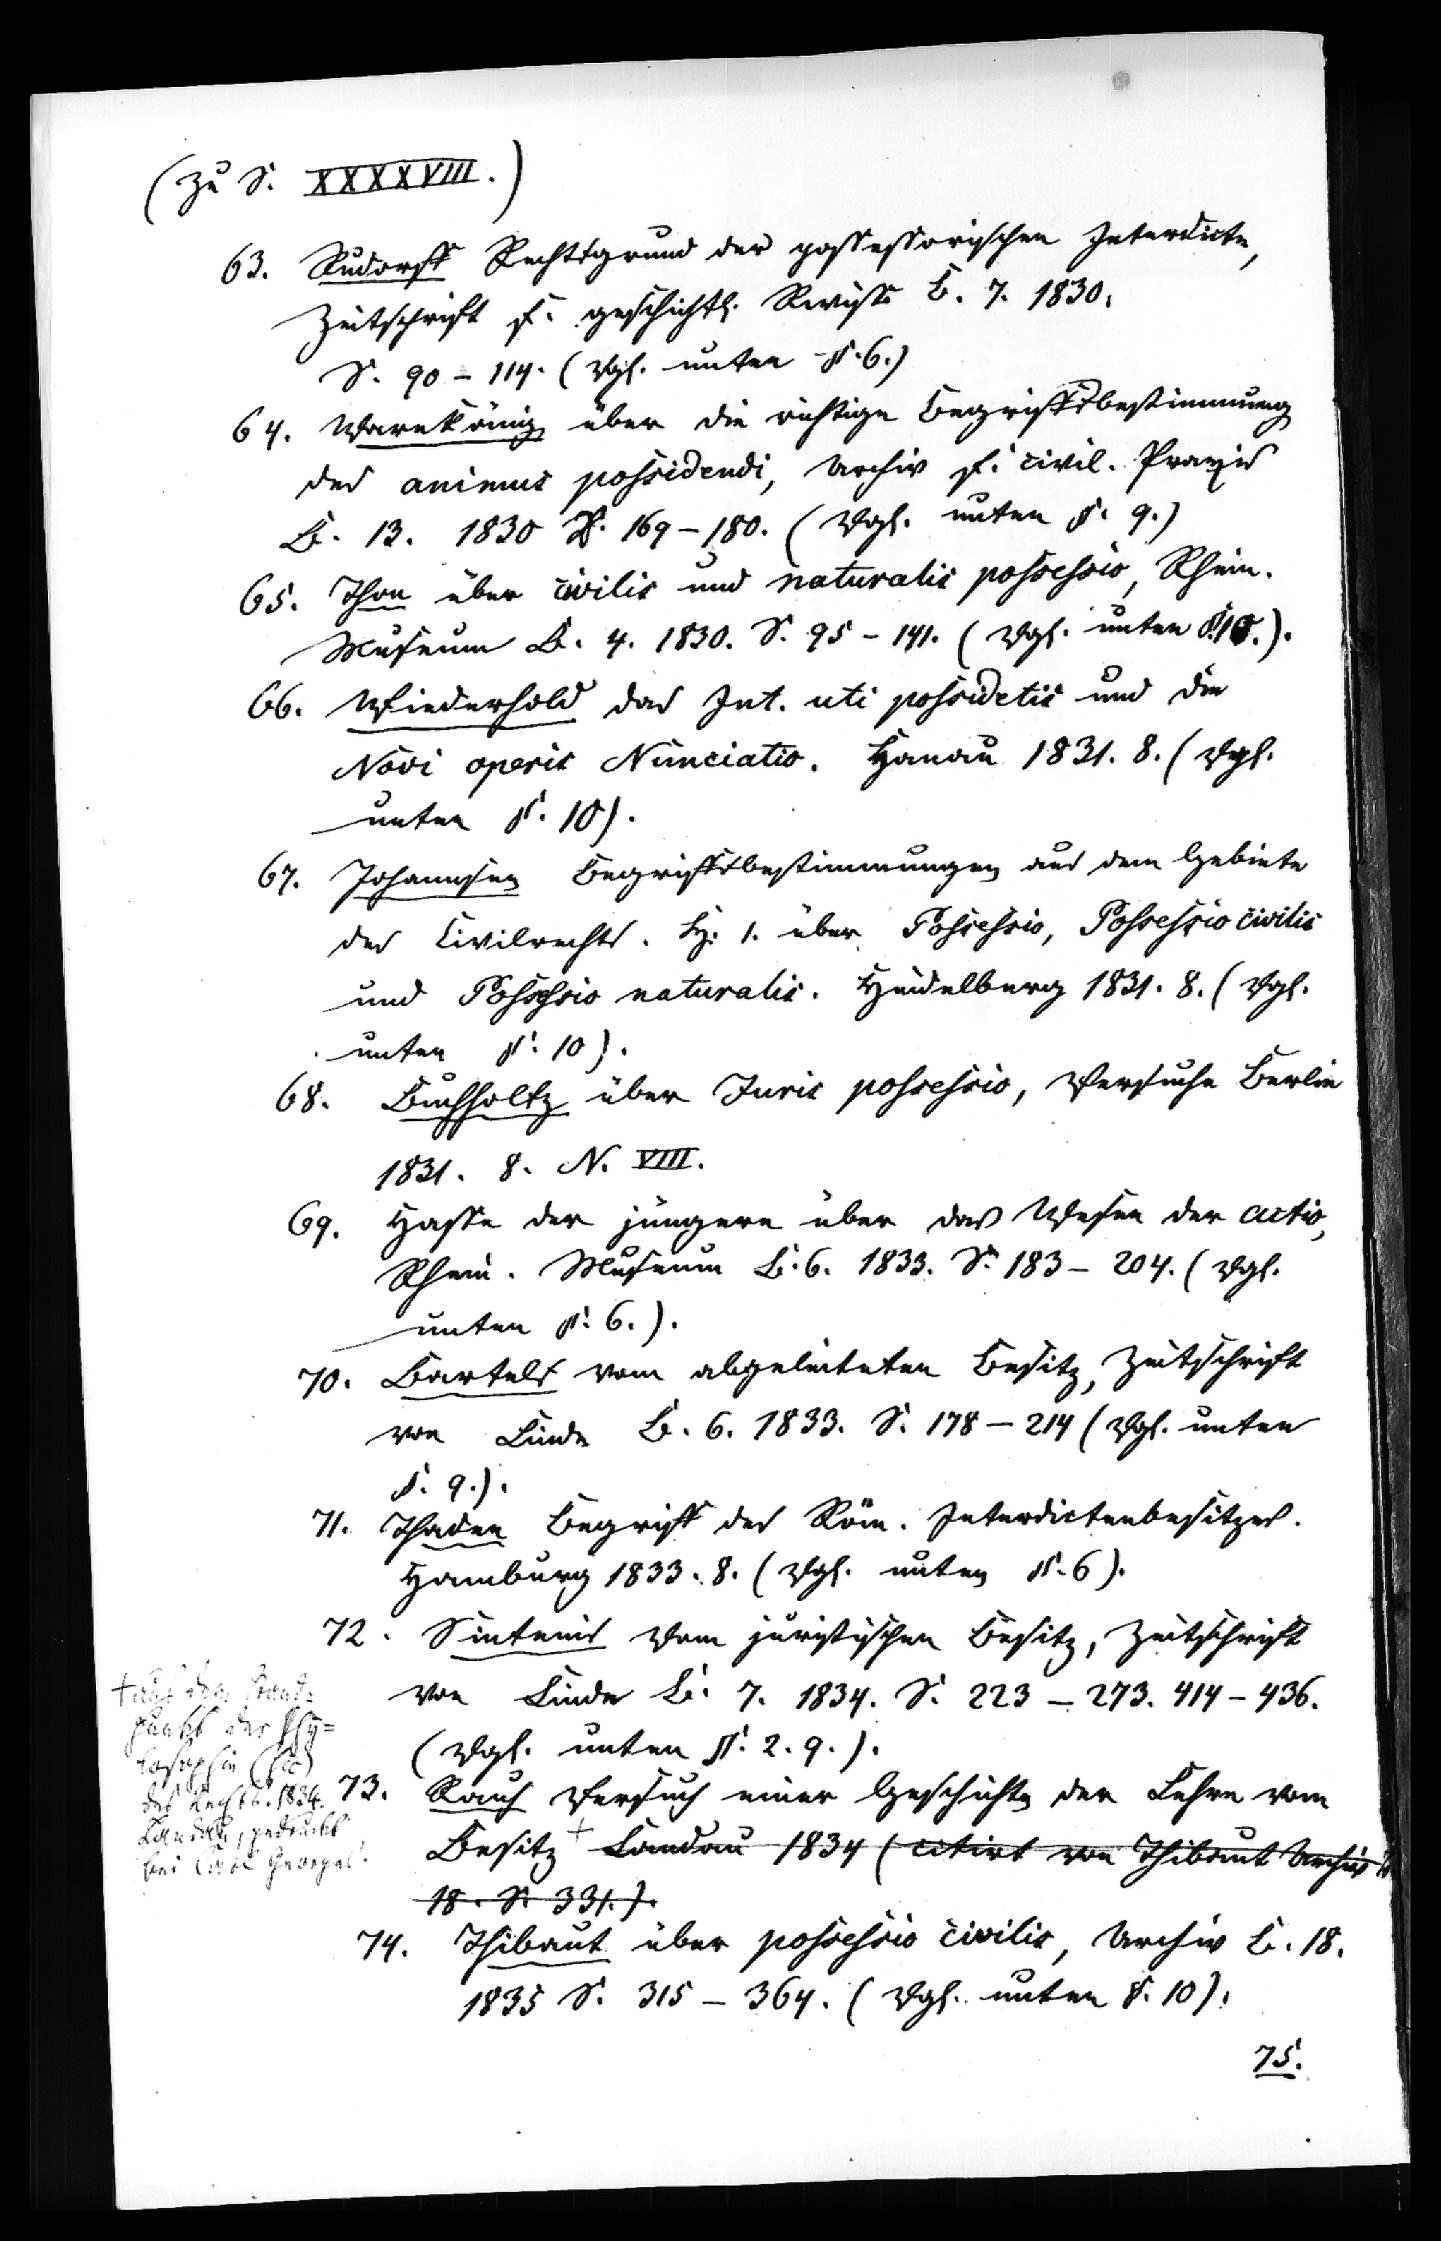 (zu S. XXXXVIII.)
63. Rudorff Rechtsgrund der possessorischen Interdicte,
Zeitschrift f. geschichtl. Rwiss. B. 7. 1830.
S. 90 – 114. (Vgl. unten §. 6.)
64. Warnkönig über die richtige Begriffsbestimmung
des animus possidendi, Archiv f. civil. Praxis
B. 13. 1830 S. 169 – 180. (Vgl. unten §. 9.)
65. Thon über civilis und naturalis possessio, Rhein.
Museum B. 4. 1830. S. 95 – 141. (Vgl. unten §. 10.).
66. Wiederhold das Int. uti possidetis und die
Novi operis Nunciatio. Hanau 1831. 8. (Vgl.
unten §. 10).
67. Johannsen Begriffsbestimmungen aus dem Gebiete
des Civilrechts. H. 1. über Possessio, Possessio civilis
und Possessio naturalis. Heidelberg 1831. 8. (Vgl.
unten §. 10).
68. Buchholtz über Juris possessio, Versuche Berlin
1831. 8. N. VIII.
69. Hasse der jüngere über das Wesen der actio,
Rhein. Museum B. 6. 1833. S. 183 – 204. (Vgl.
unten §. 6.).
70. Bartels vom abgeleiteten Besitz, Zeitschrift
von Linde B. 6. 1833. S. 178 – 214 (Vgl. unten
§. 9.).
71. Thaden Begriff des Röm. Interdictenbesitzes.
Hamburg 1833. 8. (Vgl. unten §. 6).
72. Sintenis Vom juristischen Besitz, Zeitschrift
von Linde B. 7. 1834. S. 223 – 273. 414 – 436.
(Vgl. unten §. 2. 9.).
73. Rauch Versuch einer Geschichte der Lehre vom
Besitz + Landau 1834 (citirt von Thibaut Archiv B.
18. S. 331.).
+ aus dem Stand-
punkt der Phy=
losophie (sic)
des Rechts. 1834.
Landau, gedruckt
bei Carl Georges.
74. Thibaut über possessio civilis, Archiv B. 18.
1835 S. 315 – 364. (Vgl. unten §. 10).
75.